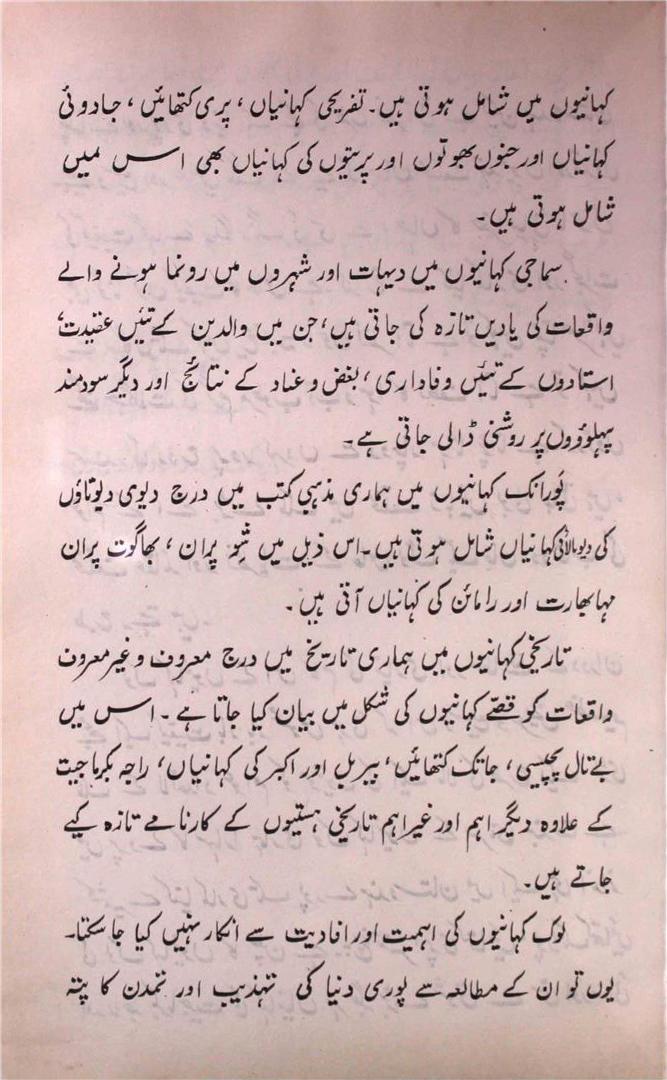 کہانیوں میں شامل ہوتی ہیں۔ تفریحی کہانیاں، پری کتھائیں، جادوئی
کہانیاں اور جنوں بھوتوں اور پریتوں کی کہانیاں بھی اس میں
شامل ہوتی ہیں۔
سماجی کہانیوں میں دیہات اور شہروں میں رونما ہونے والے
واقعات کی یادیں تازہ کی جاتی ہیں، جن میں والدین کے تئیں عقیدت،
استادوں کے تئیں وفاداری، بغض و عناد کے نتائج اور دیگر سودمند
پہلوؤوں پر روشنی ڈالی جاتی ہے۔
پورانک کہانیوں میں ہماری مذہبی کتب میں درج دیوی دیوتاؤں
کی دیومالائی کہانیاں شامل ہوتی ہیں۔ اس ذیل میں شِو پران، بھاگوت پران
مہابھارت اور رامائن کی کہانیاں آتی ہیں۔
تاریخی کہانیوں میں ہماری تاریخ میں درج معروف و غیر معروف
واقعات کو قصّے کہانیوں کی شکل میں بیان کیا جاتا ہے۔ اس میں
بےتال پچیسی، جاتک کتھائیں، بیربل اور اکبر کی کہانیاں، راجہ بکرماجیت
کے علاوہ دیگر اہم اور غیر اہم تاریخی ہستیوں کے کارنامے تازہ کیے
جاتے ہیں۔
لوک کہانیوں کی اہمیت اور افادیت سے انکار نہیں کیا جا سکتا۔
یوں تو ان کے مطالعہ سے پوری دنیا کی تہذیب اور تمدن کا پتہ